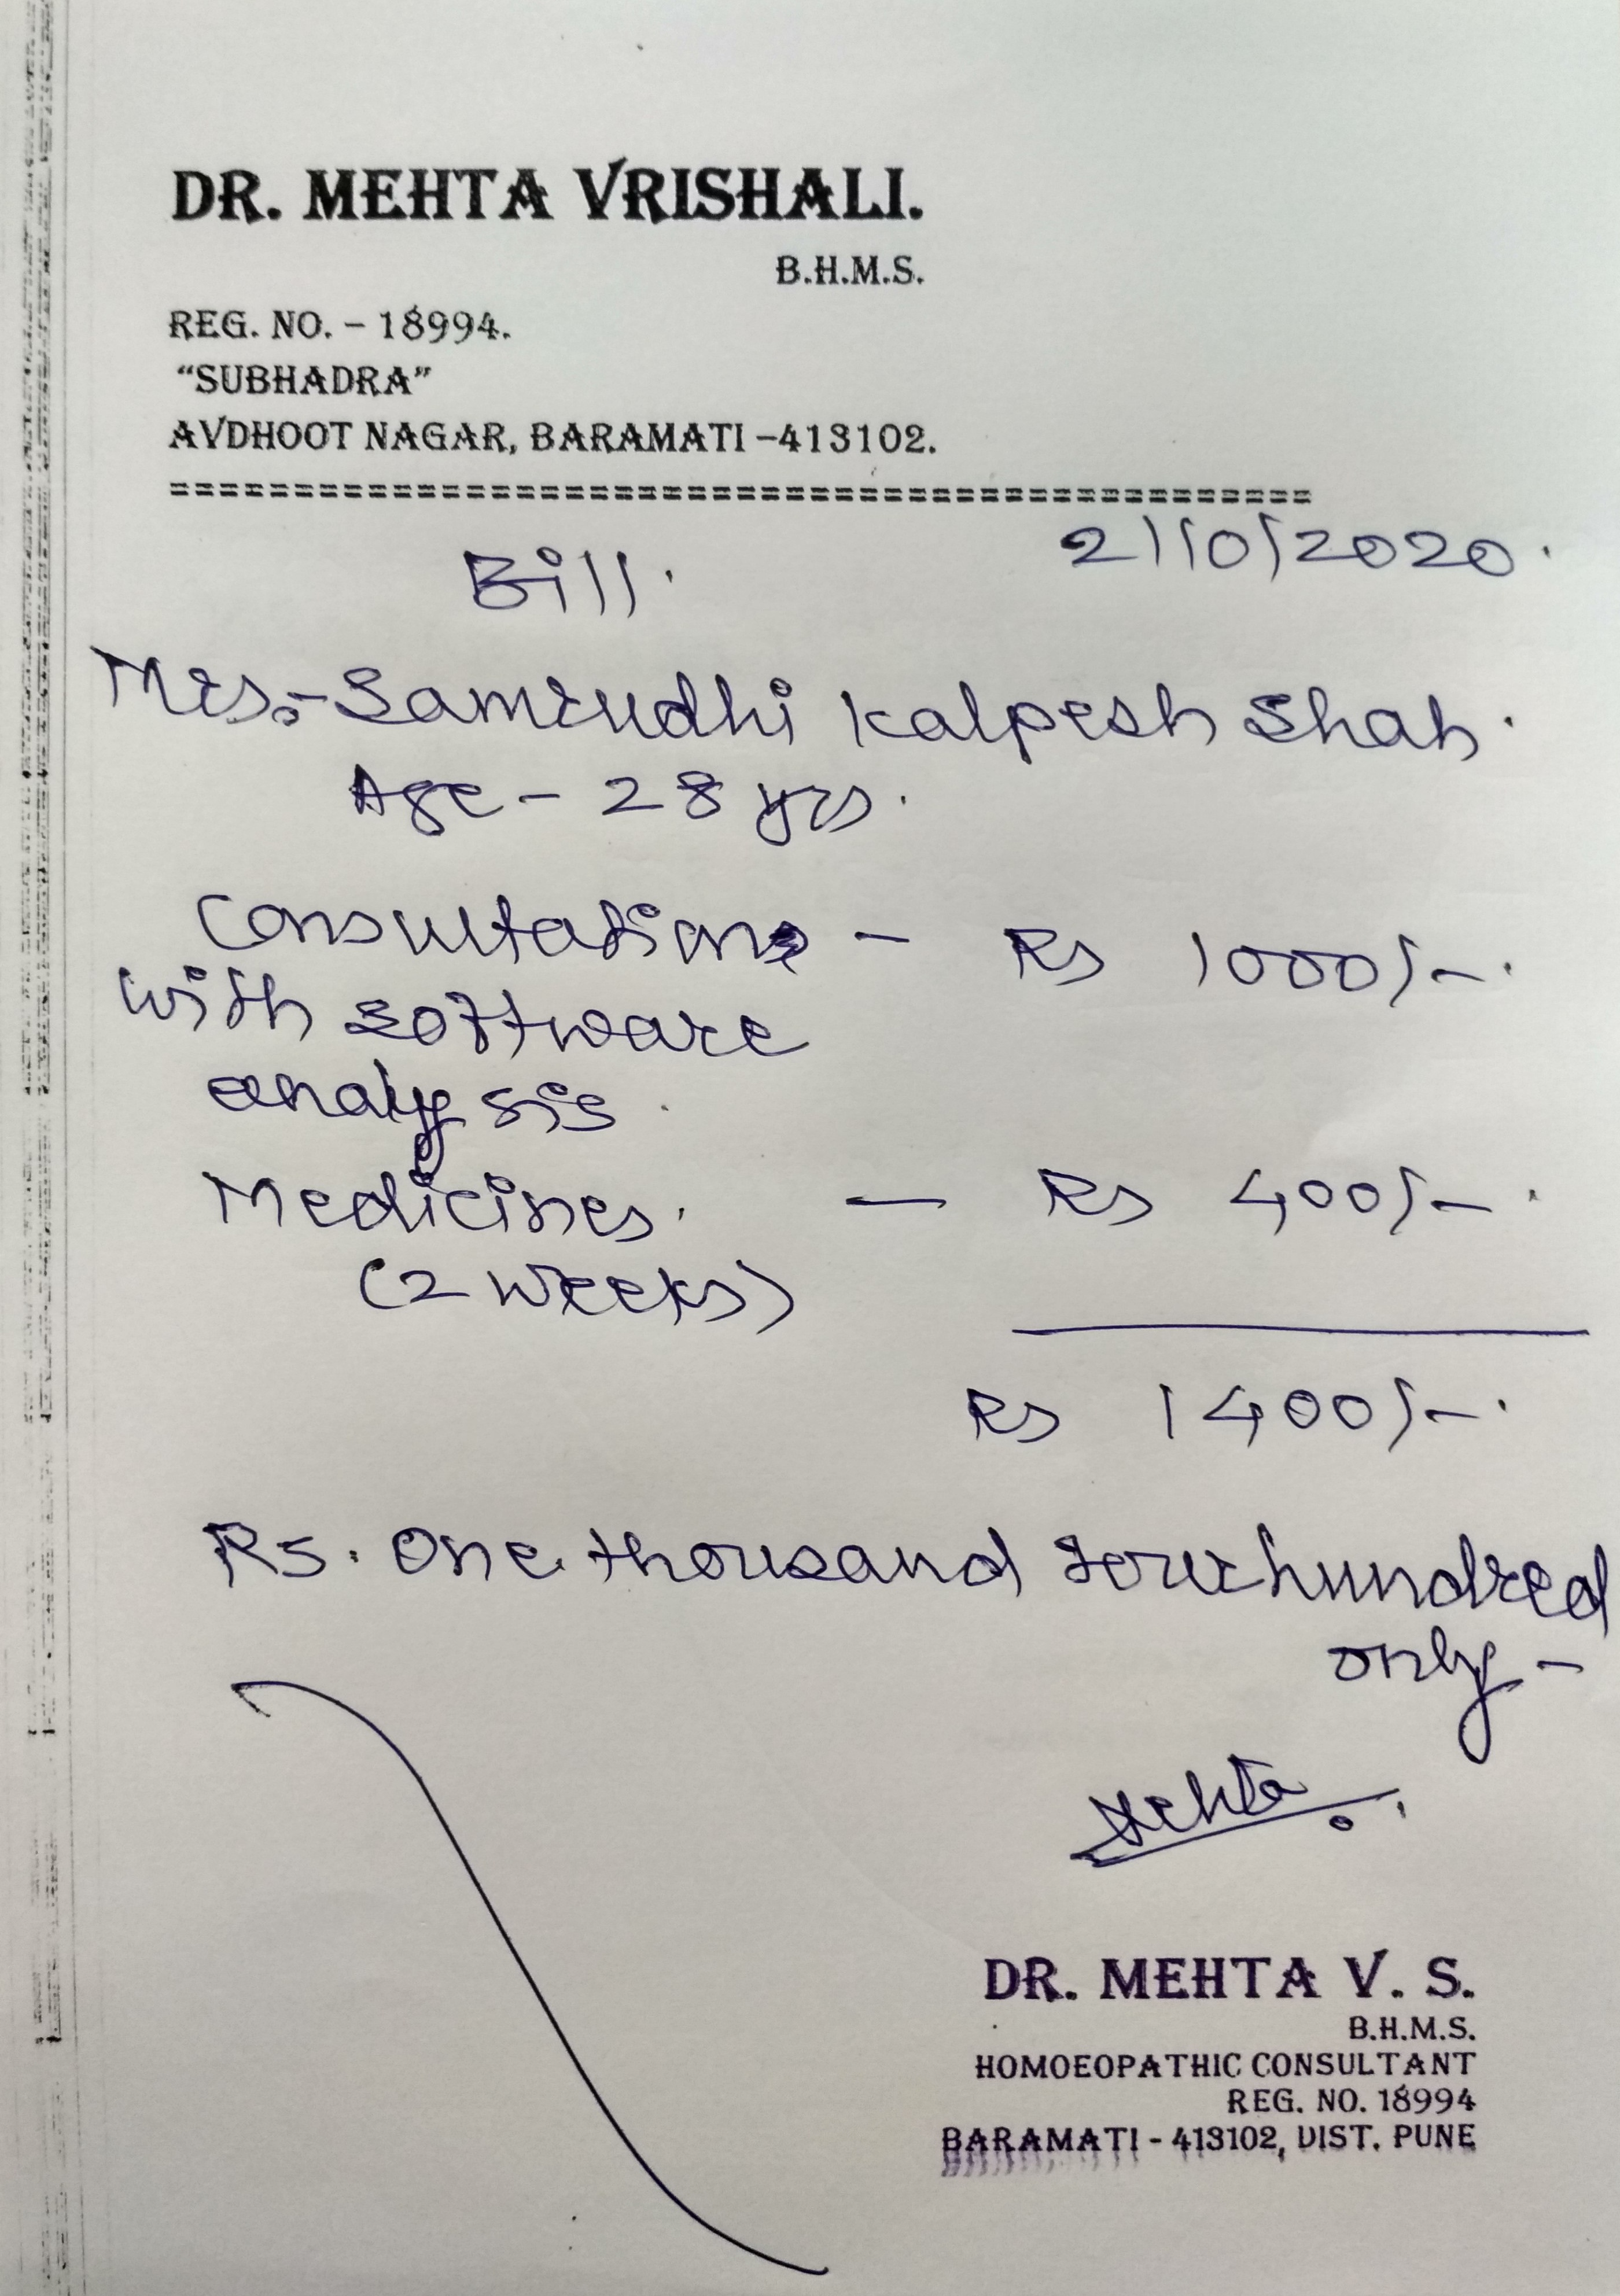 DR. MEHTA VRISHALI.
B.H.M.S.
REG. NO. – 18994.
“SUBHADRA”
AVDHOOT NAGAR, BARAMATI –413102.
==============================================
2/10/2020.
Bill.
Mrs.- Samrudhi Kalpesh Shah.
Age - 28 yrs.
Consultation - Rs 1000/-.
with software
analysis.
Medicines. - Rs 400/-.
(2 weeks)
Rs 1400/-.
Rs. One thousand four hundred
only -
Mehta
DR. MEHTA V. S.
B.H.M.S.
HOMOEOPATHIC CONSULTANT
REG. NO. 18994
BARAMATI - 413102, DIST. PUNE